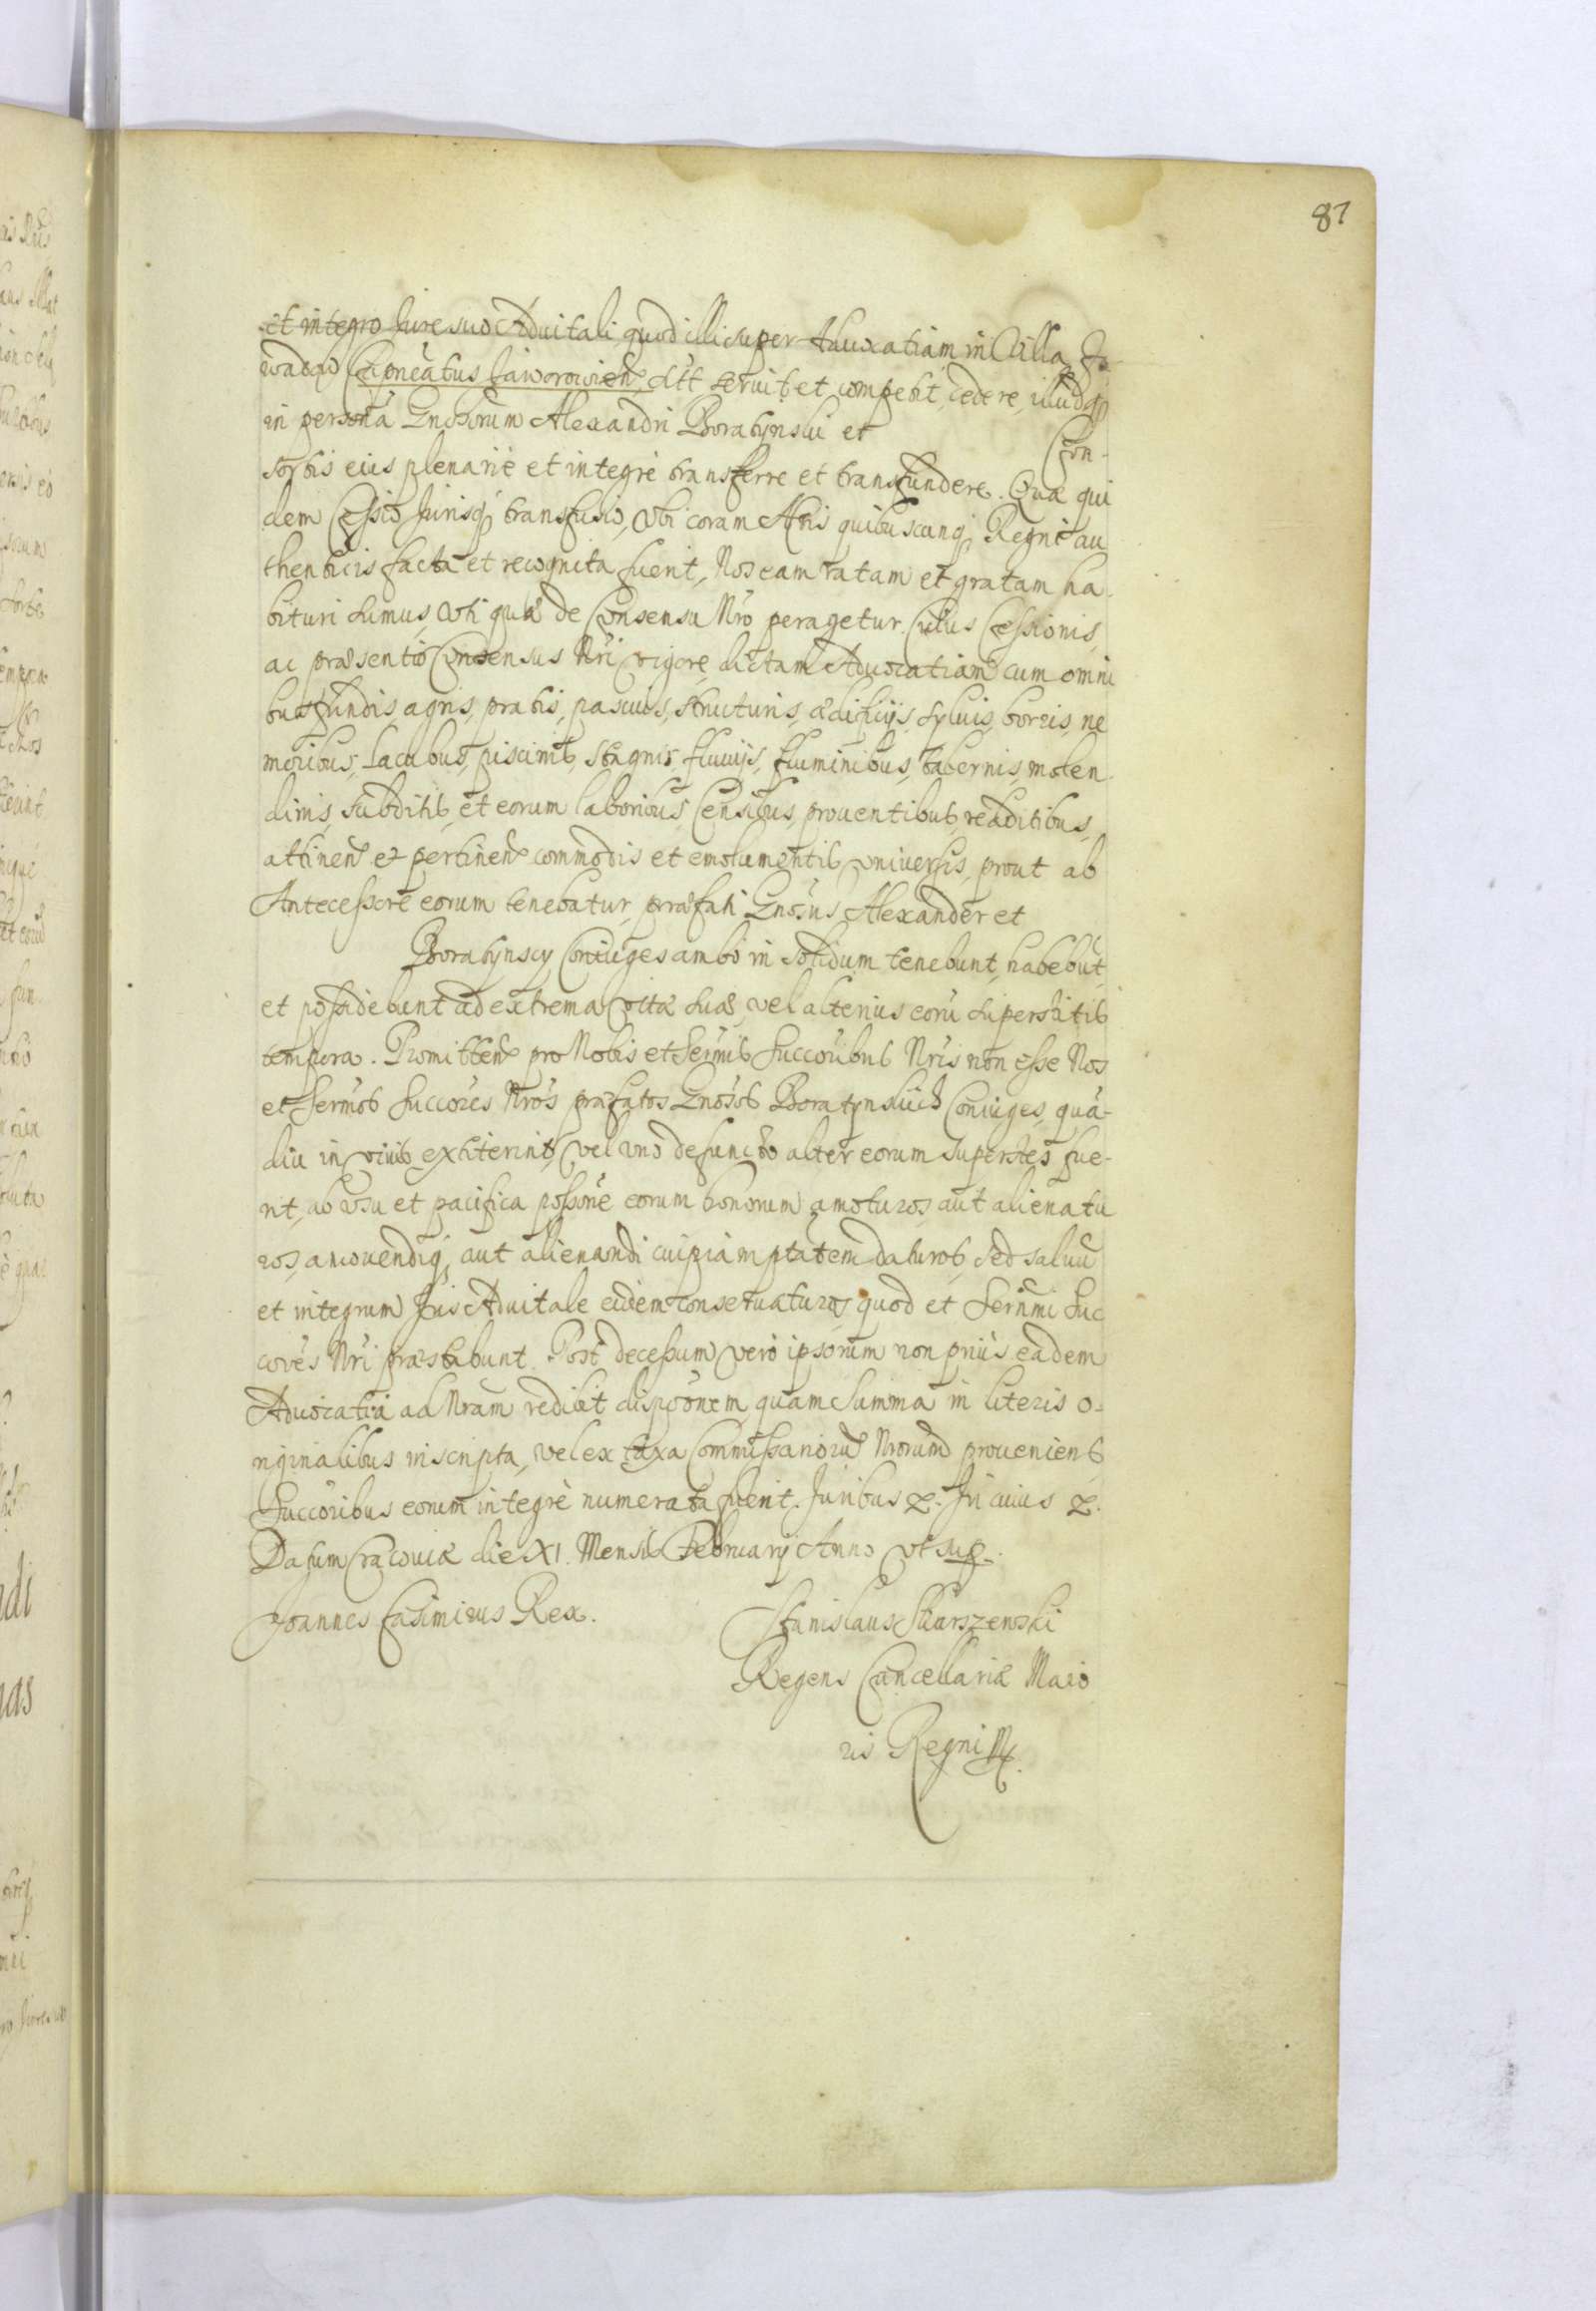 87
et integro Jure suo Aduitali, quod illi super Aduocatiam in Villa Ja
Cap̃neatus Jaworowien̄ sitt̃ seruit et competit, cedere, illudq̃
in persona Gn̄osorum Alexandri Boratynski et Con-
sortis eius plenariè et integrè transferre et transfundere. Quæ qui
dem Cessio Jurisq̃ transfusio, Vbi coram Actis quibuscunq̃ Regni au
thenticis facta et recognita fuerit, Nos eam ratam et gratam ha
bituri sumus, Vti quæ de Consensu Nr̃o peragetur. Cuius Cessionis,
ac præsentis Consensus Nr̃i vigore, dictam Aduocatiam cum omni
bus fundis, agris, pratis, pascuis, structuris, ædificijs, syluis, borris, ne
moribus, Lacubus, piscinis, stagnis, fluuijs, fluminibus, tabernis, molen
dinis, subditis, et eorum laboribus, Censibus, prouentibus, redditibus,
attinen̄ et pertinen̄ commodis et emolumentis vniuersis, prout ab
Antecessore eorum tenebatur, præfati Gn̄osus Alexander et
Boratynscy Coniuges ambo in solidum tenebunt, habebūt,
et possidebunt ad extrema vitæ suæ, vel alterius eorū superstitis
tempora. Promitten̄ pro Nobis et Sermis Succoribus Nr̃is non esse Nos
et Sermos Succores Nr̃os præfatos Gn̄osos Boratynskich Coniuges, quā-
diu in viuis extiterint, vel vno defuncto alter eorum superstes fue-
rit, ab vsu et pacifica possõne eorum bonorum amoturos, aut alienatu
ros, amouendiq̃, aut alienandi cuipiam ptatem daturos, sed saluū
et integrum Jus Aduitale eisdem conseruaturos, quod et Sern̄mi Suc
cores Nr̃i præstabunt. Post decessum verò ipsorum non priùs eadem
Aduocatia ad Nr̃am redibit dispõnem, quam Summa in literis o-
riginalibus inscripta, vel ex taxa Commissariorū Nr̃orum proueniens,
Succoribus eorum integrè numerata fuerit. Juribus &. In cuius &.
Datum Cracouiæ die XI. Mensis Februarij Anno vt sup̃.
Joannes Casimirus Rex. Stanislaus Skarszewski
Regens Cancellariæ Maio
ris Regni